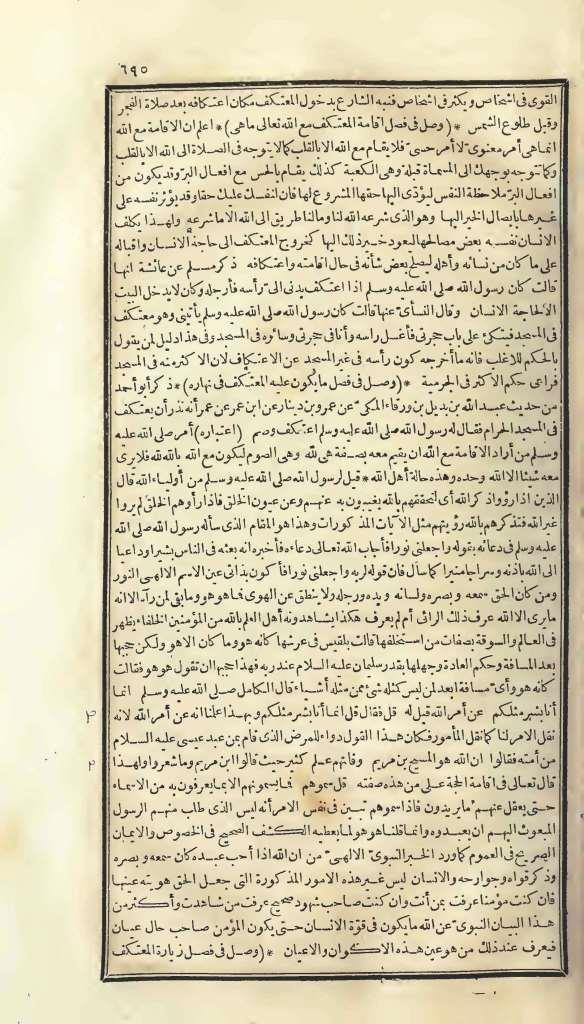 ٦٩٥
القوى فى اشخاص ويكثر فى اشخاص فنبه الشارع بدخول المعتكف مكان اعتكافه بعد صلاة الفجر
وقبل طلوع الشمس * (وصل فى فصل اقامة المعتكف مع الله تعالى ماهى) * اعلم ان الاقامة مع الله
انماهى أمر معنوى لا أمر حسى فلا يقام مع الله الا بالقلب كما لا يتوجه فى الصلاة الى الله الا بالقلب
وكما تتوجه بوجهك الى المسماة قبلة وهى الكعبة كذلك يقام بالحس مع افعال البر وقد يكون من
افعال البر ملاحظة النفس ليؤدى اليها حقها المشروع لها فان لنفسك عليك حقا وقد يؤثر نفسه على
غيرها بايصال الخير اليها وهو الذى شرعه الله لنا ومالنا طريق الى الله الا ما شرعه ولهذا يكلف
الانسان نفسه بعض مصالحها ليعود خير ذلك اليها كخروج المعتكف الى حاجة الانسان واقباله
على ما كان من نسائه وأهله ليصلح بعض شأنه فى حال اقامته واعتكافه ذكر مسلم عن عائشة انها
قالت كان رسول الله صلى الله عليه وسلم اذا اعتكف يدنى الى رأسه فأرجله وكان لا يدخل البيت
الا لحاجة الانسان وقال النسائى عنها قالت كان رسول الله صلى الله عليه وسلم يأتينى وهو معتكف
فى المسجد فيتكئ على باب حجرتى فأغسل رأسه وأنا فى حجرتى وسائره فى المسجد وفى هذا دليل لمن يقول
بالحكم للاغلب فانه ما أخرجه كون رأسه فى غير المسجد عن الاعتكاف لان الاكثر منه فى المسجد
فراعى حكم الاكثر فى الجرمية * (وصل فى فصل ما يكون عليه المعتكف فى نهاره) * ذكر أبو أحمد
من حديث عبد الله بن بديل بن ورقاء المكى عن عمرو بن دينار عن ابن عمر عن عمر أنه نذر أن يعتكف
فى المسجد الحرام فقال له رسول الله صلى الله عليه وسلم اعتكف وصم (اعتباره) أمر صلى الله عليه
وسلم من أراد الاقامة مع الله ان يقيم معه بصفة هى لله وهى الصوم ليكون مع الله بالله لله فلا يرى
معه شيئا الا الله وحده وهذه حالة أهل الله * قيل لرسول الله صلى الله عليه وسلم من أولياء الله قال
الذين اذا رؤوا ذكر الله أى لتحققهم بالله يغيبون به عنهم وعن عيون الخلق فاذا رأوهم الخلق لم يروا
غير الله فتذكرهم بالله رؤيتهم مثل الآيات المذكورات وهذا هو المقام الذى سأله رسول الله صلى الله
عليه وسلم فى دعائه بقوله واجعلنى نورا فأجاب الله تعالى دعاءه فأخبر انه بعثه فى الناس بشيرا وداعيا
الى الله باذنه وسراجا منيرا كما سأل فان قوله لربه واجعلنى نورا فأكون بذاتى عين الاسم الالهى النور
ومن كان الحق سمعه وبصره ولسانه ويده ورجله ولا ينطق عن الهوى فما هو هو وما بقى لمن رآه الا انه
ما يرى الا الله عرف ذلك الرائى أم لم يعرف هكذا يشاهدونه أهل العلم بالله من المؤمنين الخلفاء يظهر
فى العالم والسوقة بصفات من استخلفها قالت بلقيس فى عرشها كأنه هو وما كان الا هو ولكن حجبها
بعد المسافة وحكم العادة وجهلها بقدر سليمان عليه السلام عند ربه فهذا حجبها ان تقول هو هو فقالت
كأنه هو وأى مسافة أبعد لمن ليس كمثله شئ ممن مثله أشياء قال الكامل صلى الله عليه وسلم انما
أنا بشر مثلكم عن أمر الله قيل له قل فقال قل انما أنا بشر مثلكم وبهذا علمنا انه عن أمر الله لانه
نقل الامر لنا كما نقل المأمور فكان هذا القول دواء للمرض الذى قام بمن عبد عيسى عليه السلام
من أمته فقالوا ان الله هو المسيح بن مريم وفاتهم علم كثير حيث قالوا ابن مريم وما شعروا ولهذا
قال تعالى فى اقامة الحجة على من هذه صفته قل سموهم فما يسمونهم الا بما يعرفون به من الاسماء
حتى يعقل عنهم ما يريدون فاذا سموهم تبين فى نفس الامر أنه ليس الذى طلب منهم الرسول
المبعوث اليهم ان يعبدوه وانما قلنا هو هو لما يعطيه الكشف الصحيح فى الخصوص والايمان
الصريح فى العموم كما ورد الخبر النبوى الالهى من ان الله اذا أحب عبده كان سمعه وبصره
وذكر قواه وجوارحه والانسان ليس غير هذه الامور المذكورة التى جعل الحق هويته عينها
فان كنت مؤمنا عرفت بمن أنت وان كنت صاحب شهود صحيح عرفت من شاهدت وأكثر من
هذا البيان النبوى عن الله ما يكون فى قوة الانسان حتى يكون المؤمن صاحب حال عيان
فيعرف عند ذلك من هو عين هذه الاكوان والاعيان * (وصل فى فصل زيارة المعتكف